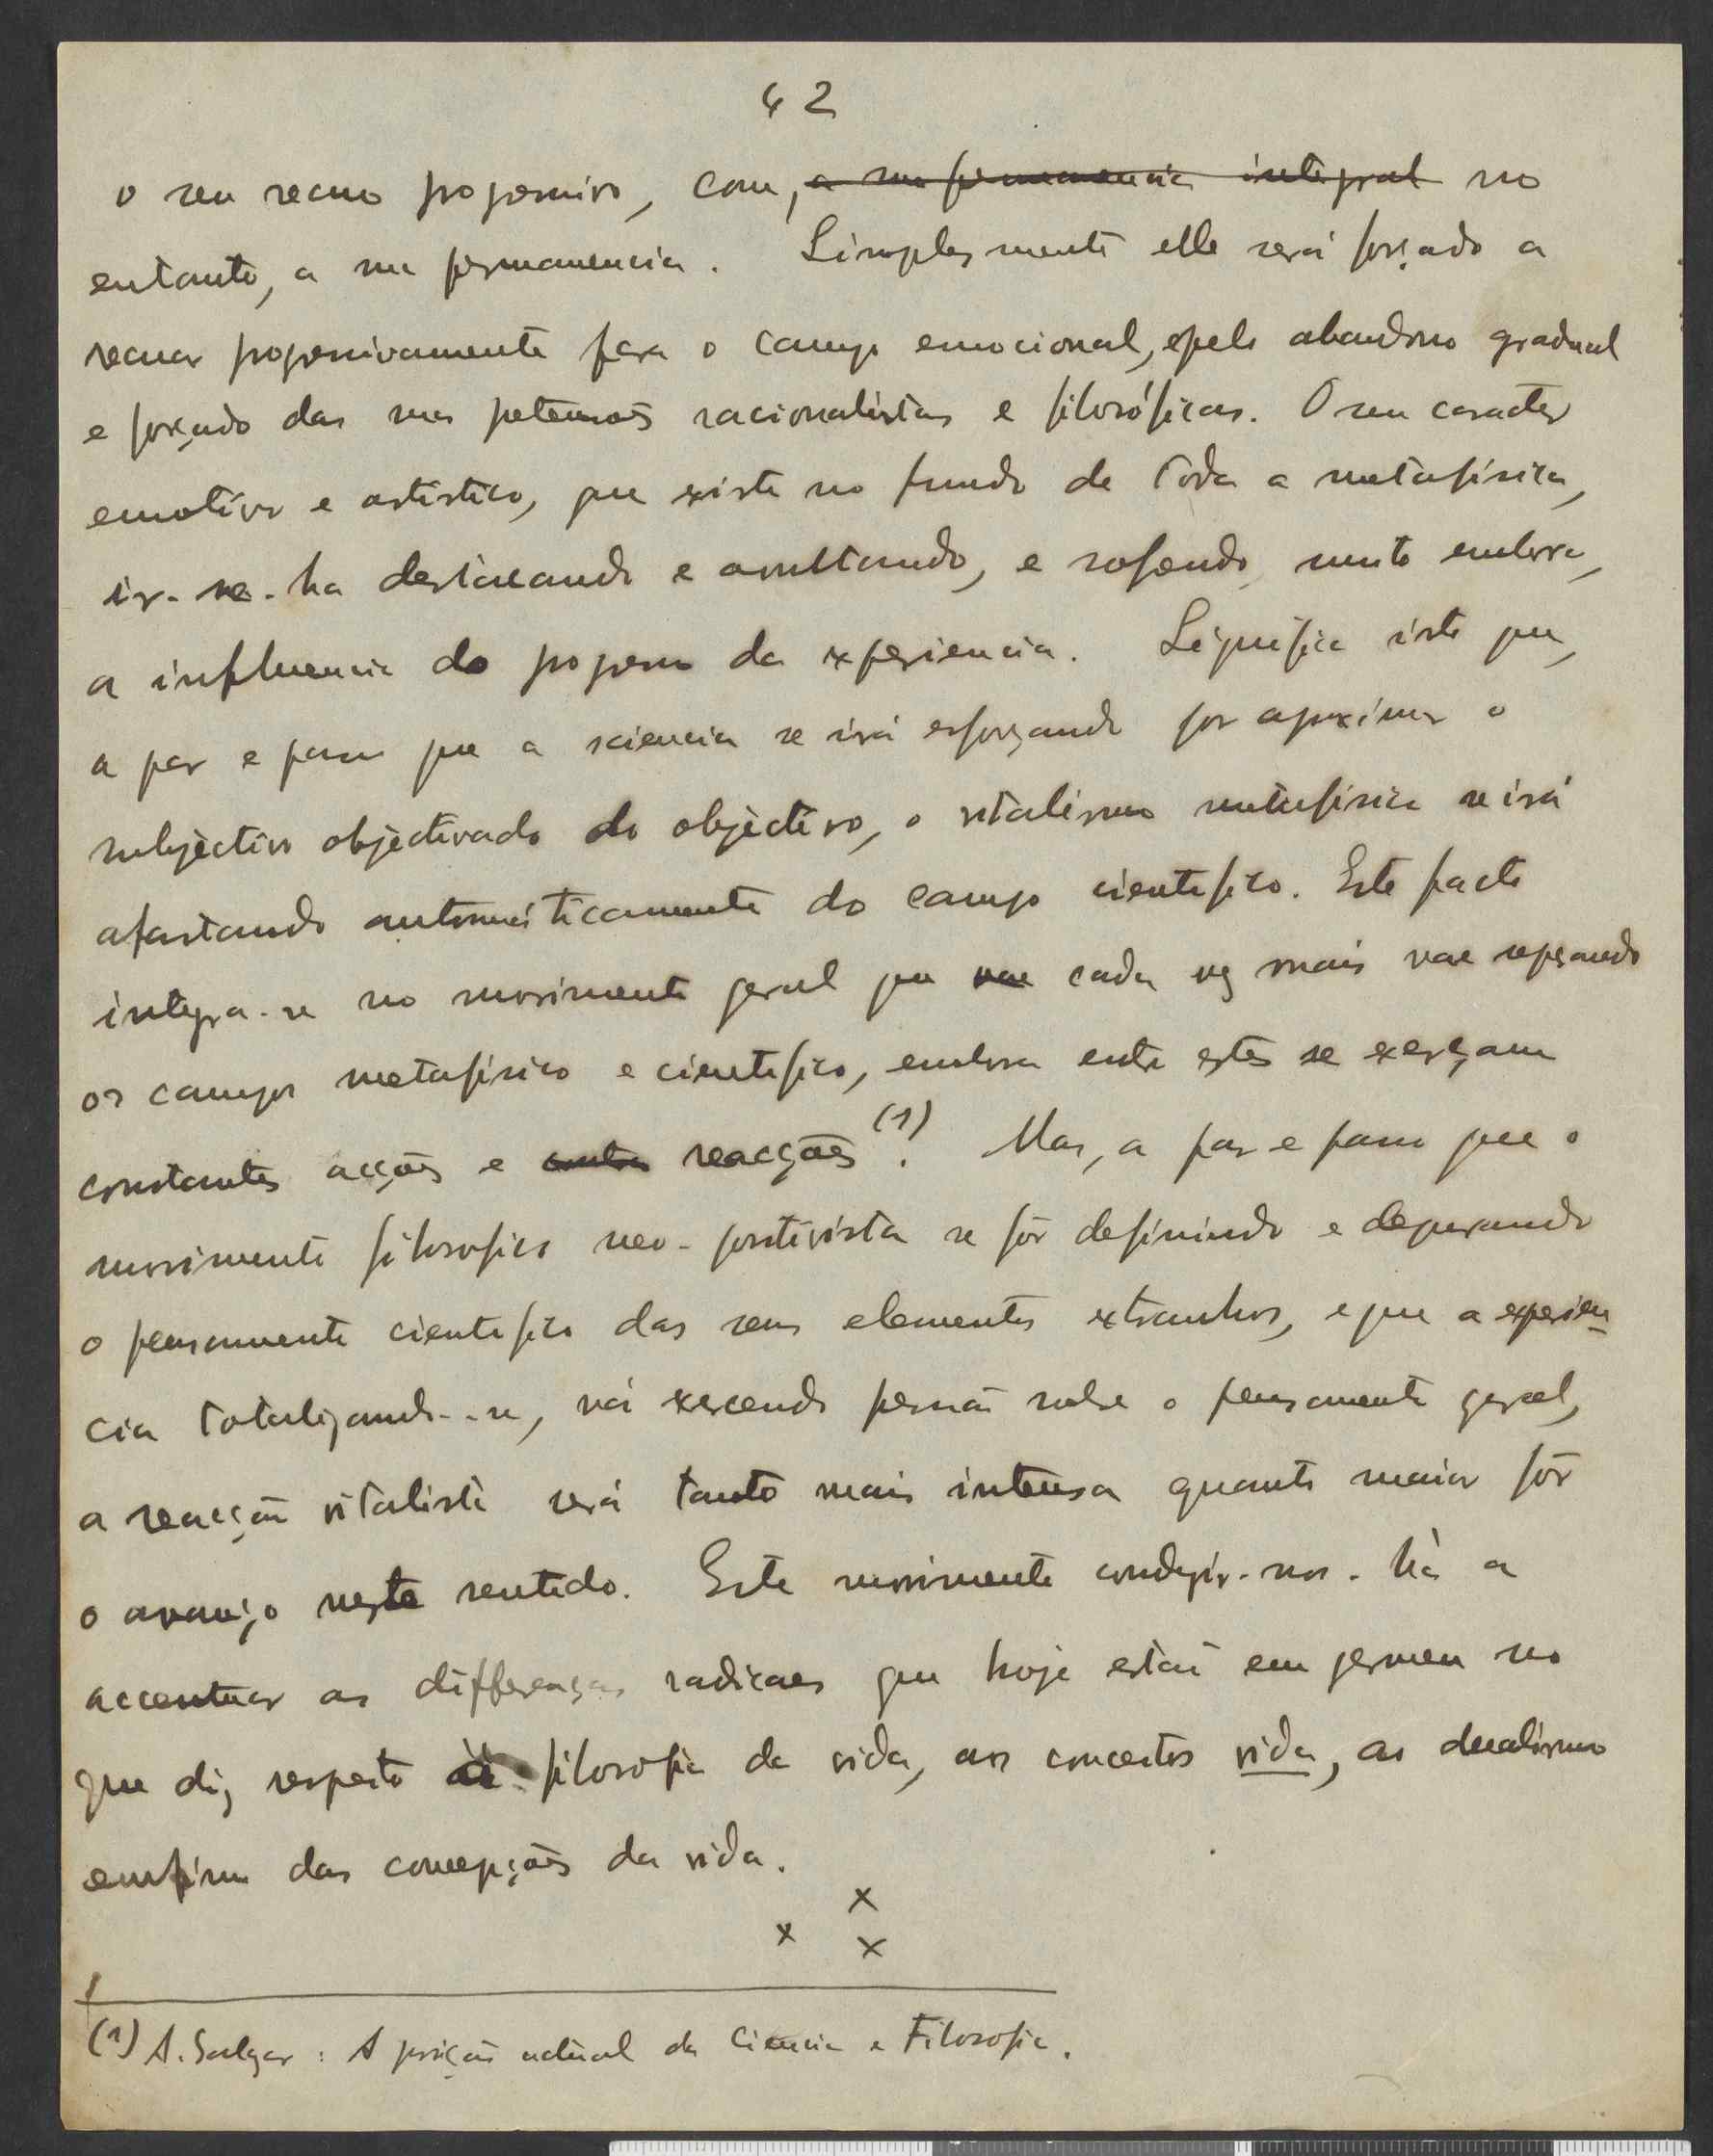 42
o seu recuo progressivo, com, a sua permanencia integral no
entanto, a sua permanencia. Simplesmente elle será forçado a
recuar progressivamente para o campo emocional, e pelo abandono gradual
e forçado das suas pretensões racionalistas e filosóficas. O seu caracter
emotivo e artistico, que existe no fundo de toda a metafísica,
ir-se-ha destacando e avultando, e sofrendo, muito embora,
a influencia do progresso da experiencia. Significa isto que,
a par e passo que a sciencia se irá esforçando por aproximar o
subjèctivo objèctivado do objèctivo, o vitalismo metafísico se irá
afastando automáticamente do campo cientifico. Este facto
integra-se no movimento geral que vae cada vez mais vae separando
os campos metafísico e cientifico, embora entre estes se exerçam
constantes acções e reacções (1). Mas, a par e passo que o
movimento filosofico neo-positivista se fôr definindo e depurando
o pensamento cientifico dos seus elementos extranhos, e que a experien-
cia totalizando-se, vá exercendo pressão sobre o pensamento geral,
a reacção vitalista será tanto mais intensa quanto maior fôr
o avanço neste sentido. Este movimento conduzir-nos-há a
accentuar as differenças radicaes que hoje estão em germen no
que diz respeito á filosofia da vida, aos conceitos vida, ao dualismo
emfim das concepções da vida.
x
x x
(1) A. Salgar: A posição actual da Ciencia e Filosofia.